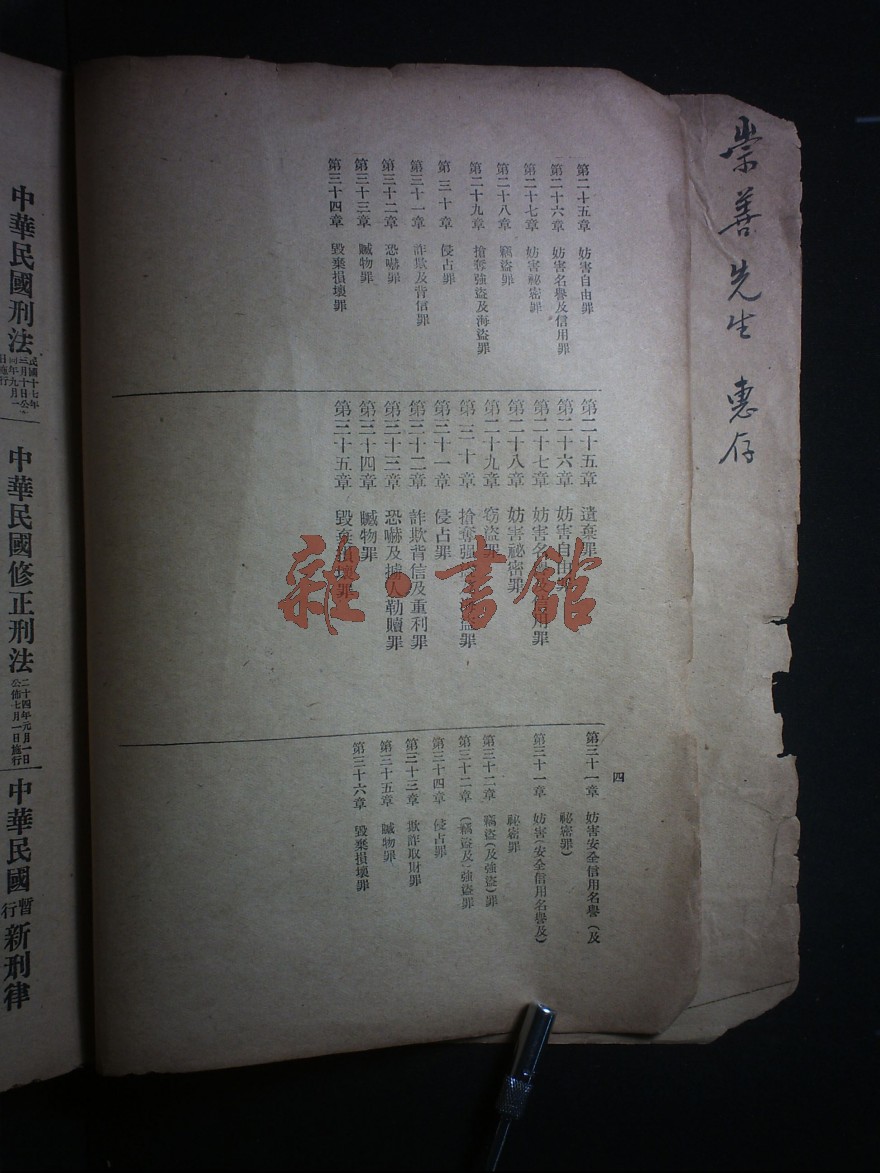 崇善先生 惠存
四
第二十五章 妨害自由罪
第二十六章 妨害名譽及信用罪
第二十七章 妨害祕密罪
第二十八章 竊盜罪
第二十九章 搶奪強盜及海盜罪
第三十章 侵占罪
第三十一章 詐欺及背信罪
第三十二章 恐嚇罪
第三十三章 贓物罪
第三十四章 毀棄損壞罪
第二十五章 遺棄罪
第二十六章 妨害自由
第二十七章 妨害名 信用罪
第二十八章 妨害祕密罪
第二十九章 窃盜罪
第三十章 搶奪强 盜罪
第三十一章 侵占罪
第三十二章 詐欺背信及重利罪
第三十三章 恐嚇及擄人勒贖罪
第三十四章 贓物罪
第三十五章 毀棄損壞罪
第三十一章 妨害安全信用名譽(及
祕密罪)
第三十一章 妨害(安全信用名譽及)
祕密罪
第三十二章 竊盜(及強盜)罪
第三十二章 (竊盜及)強盜罪
第三十四章 侵占罪
第三十三章 欺詐取財罪
第三十五章 贓物罪
第三十六章 毀棄損壞罪
雜·書館
中華民國刑法
民國十七年
三月十日公
同年九月一
日施行
中華民國修正刑法
二十四年元月一日
公佈七月一日施行
中華民國暫行新刑律